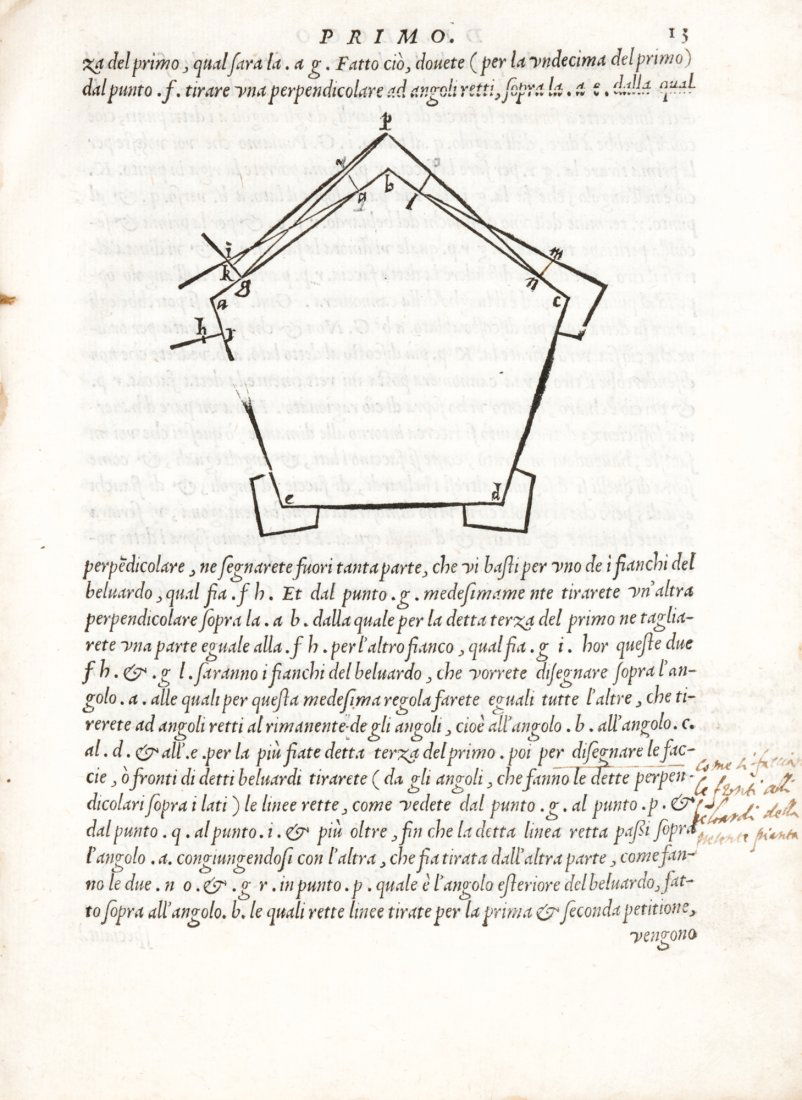 PRIMO. 13
za del primo, qual ſara la . a g . Fatto ciò, douete ( per la vndecima del primo)
dal punto . f . tirare vna perpendicolare ad angoli retti, ſopra la . a e . dalla qual
p
b
q
l
i
k
g
a
m
n
c
h
f
e
d
perpẽdicolare, ne ſegnarete fuori tanta parte, che vi baſti per vno de i fianchi del
beluardo, qual ſia . f h . Et dal punto . g . medeſimame nte tirarete vn'altra
perpendicolare ſopra la . a b . dalla quale per la detta terza del primo ne taglia-
rete vna parte eguale alla . f h . per l'altro fianco, qual ſia . g i . hor queſte due
f h . & . g l . ſaranno i fianchi del beluardo, che vorrete diſegnare ſopra l'an-
golo . a . alle quali per queſta medeſima regola farete eguali tutte l'altre, che ti-
rerete ad angoli retti al rimanente de gli angoli, cioè all'angolo . b . all'angolo . c .
al . d . & all' . e . per la più fiate detta terza del primo . poi per diſegnare le fac-
cie, ò fronti di detti beluardi tirarete ( da gli angoli, che fanno le dette perpen-
dicolari ſopra i lati ) le linee rette, come vedete dal punto . g . al punto . p . &
dal punto . q . al punto . i . & più oltre, fin che la detta linea retta paſſi ſopra
l'angolo . a . congiungendoſi con l'altra, che ſia tirata dall'altra parte, come fan-
no le due . n o . & . g r . in punto . p . quale è l'angolo eſteriore del beluardo, fat-
to ſopra all'angolo . b . le quali rette linee tirate per la prima & ſeconda petitione,
vengono
come si faccia
le fronti alli
beloardi della
pianta